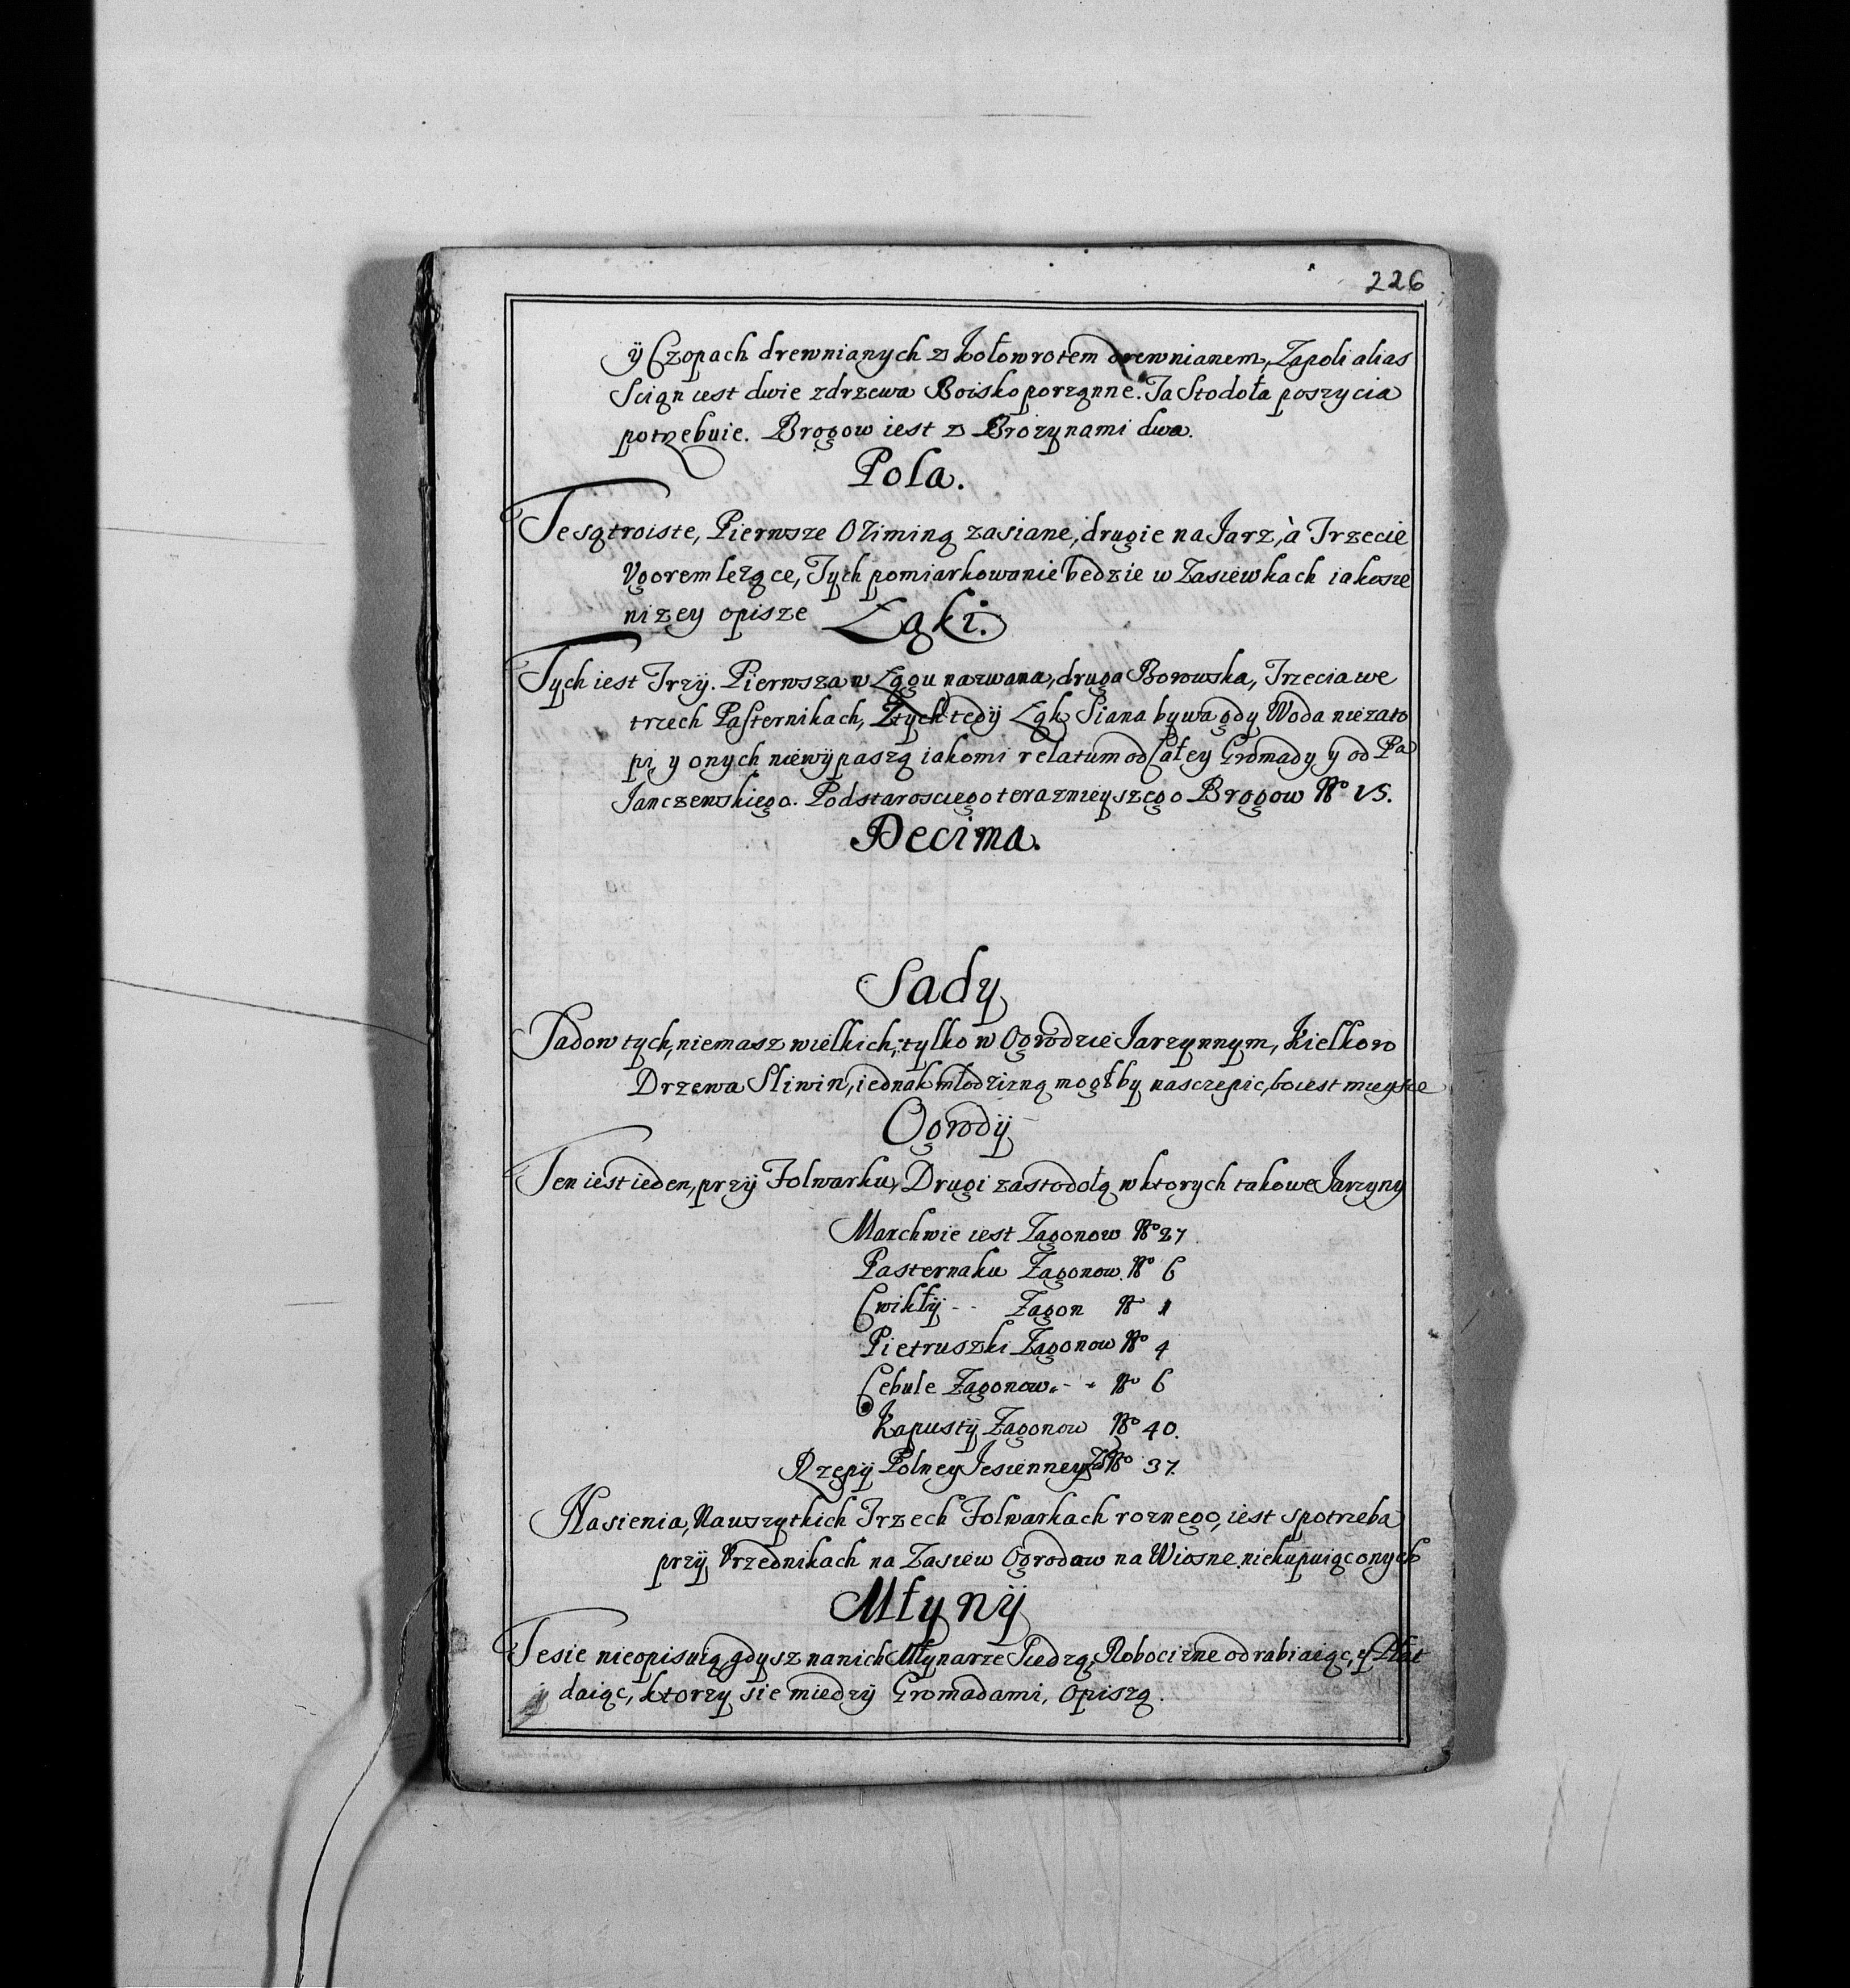 226
ÿ Czopach drewnianych z Kołowrotem drewnianem, Zapoli alias
Sciąn iest dwie zdrzewa Boisko porządnne. Ta Stodoła poszycia
potrzebuie. Brogow iest z Brozynami dwa.
Pola.
Te sątroiste, Pierwsze Oźiminą zasiane, drugie na Jarz, à Trzecie
Vgorem leżące, Tych pomiarkowanie będzie w Zasiewkach iakosie
nizey opisze
Łąki.
Tych iest Trzÿ. Pierwsza w Łągu nazwana, druga Borowska, Trzecia we
trzech Pasternikach, Ztych tedÿ Łąk Siana bywa gdy Woda niezato
pi, y onych niewÿpaszą iakomi relatum od Całey Gromady y od Pa
Janczewskiego. Podstarosciego terazmieyszego Brogow No 15.
Decima.
Sady
Sadow tych, niemasz wielkich, tylko w Ogrodzie Jarzynnym, Kielkoro
Drzewa Sliwin, iednak młodzizną mogłby nasczepic, bo iest mieysce
Ogrodÿ
Ten iest ieden, przÿ Folwarku, Drugi zastodołą w ktorych takowe Jarzyny
Marchwie iest Zagonow No 27.
Pasternaku Zagonow. No 6
Cwikłÿ - - Zagon No 1
Pietruszki Zagonow No 4
Cebule Zagonow. - - No 6
Kapustÿ Zagonow No 40.
Rzepÿ Polney Jesienney No 37.
Nasienia, Nawszytkich Trzech Folwarkach roznego, iest spotrzeba
przÿ Vrzednikach na Zasiew Ogrodow na Wiosne niekupuiąconych
Młynÿ
Te sie nieopisuią, gdysz nanich Młynarze Siedzą, Robocizne odrabiaiąc, y Płat
daiąc, ktorzy sie miedzÿ Gromadami, opiszą.